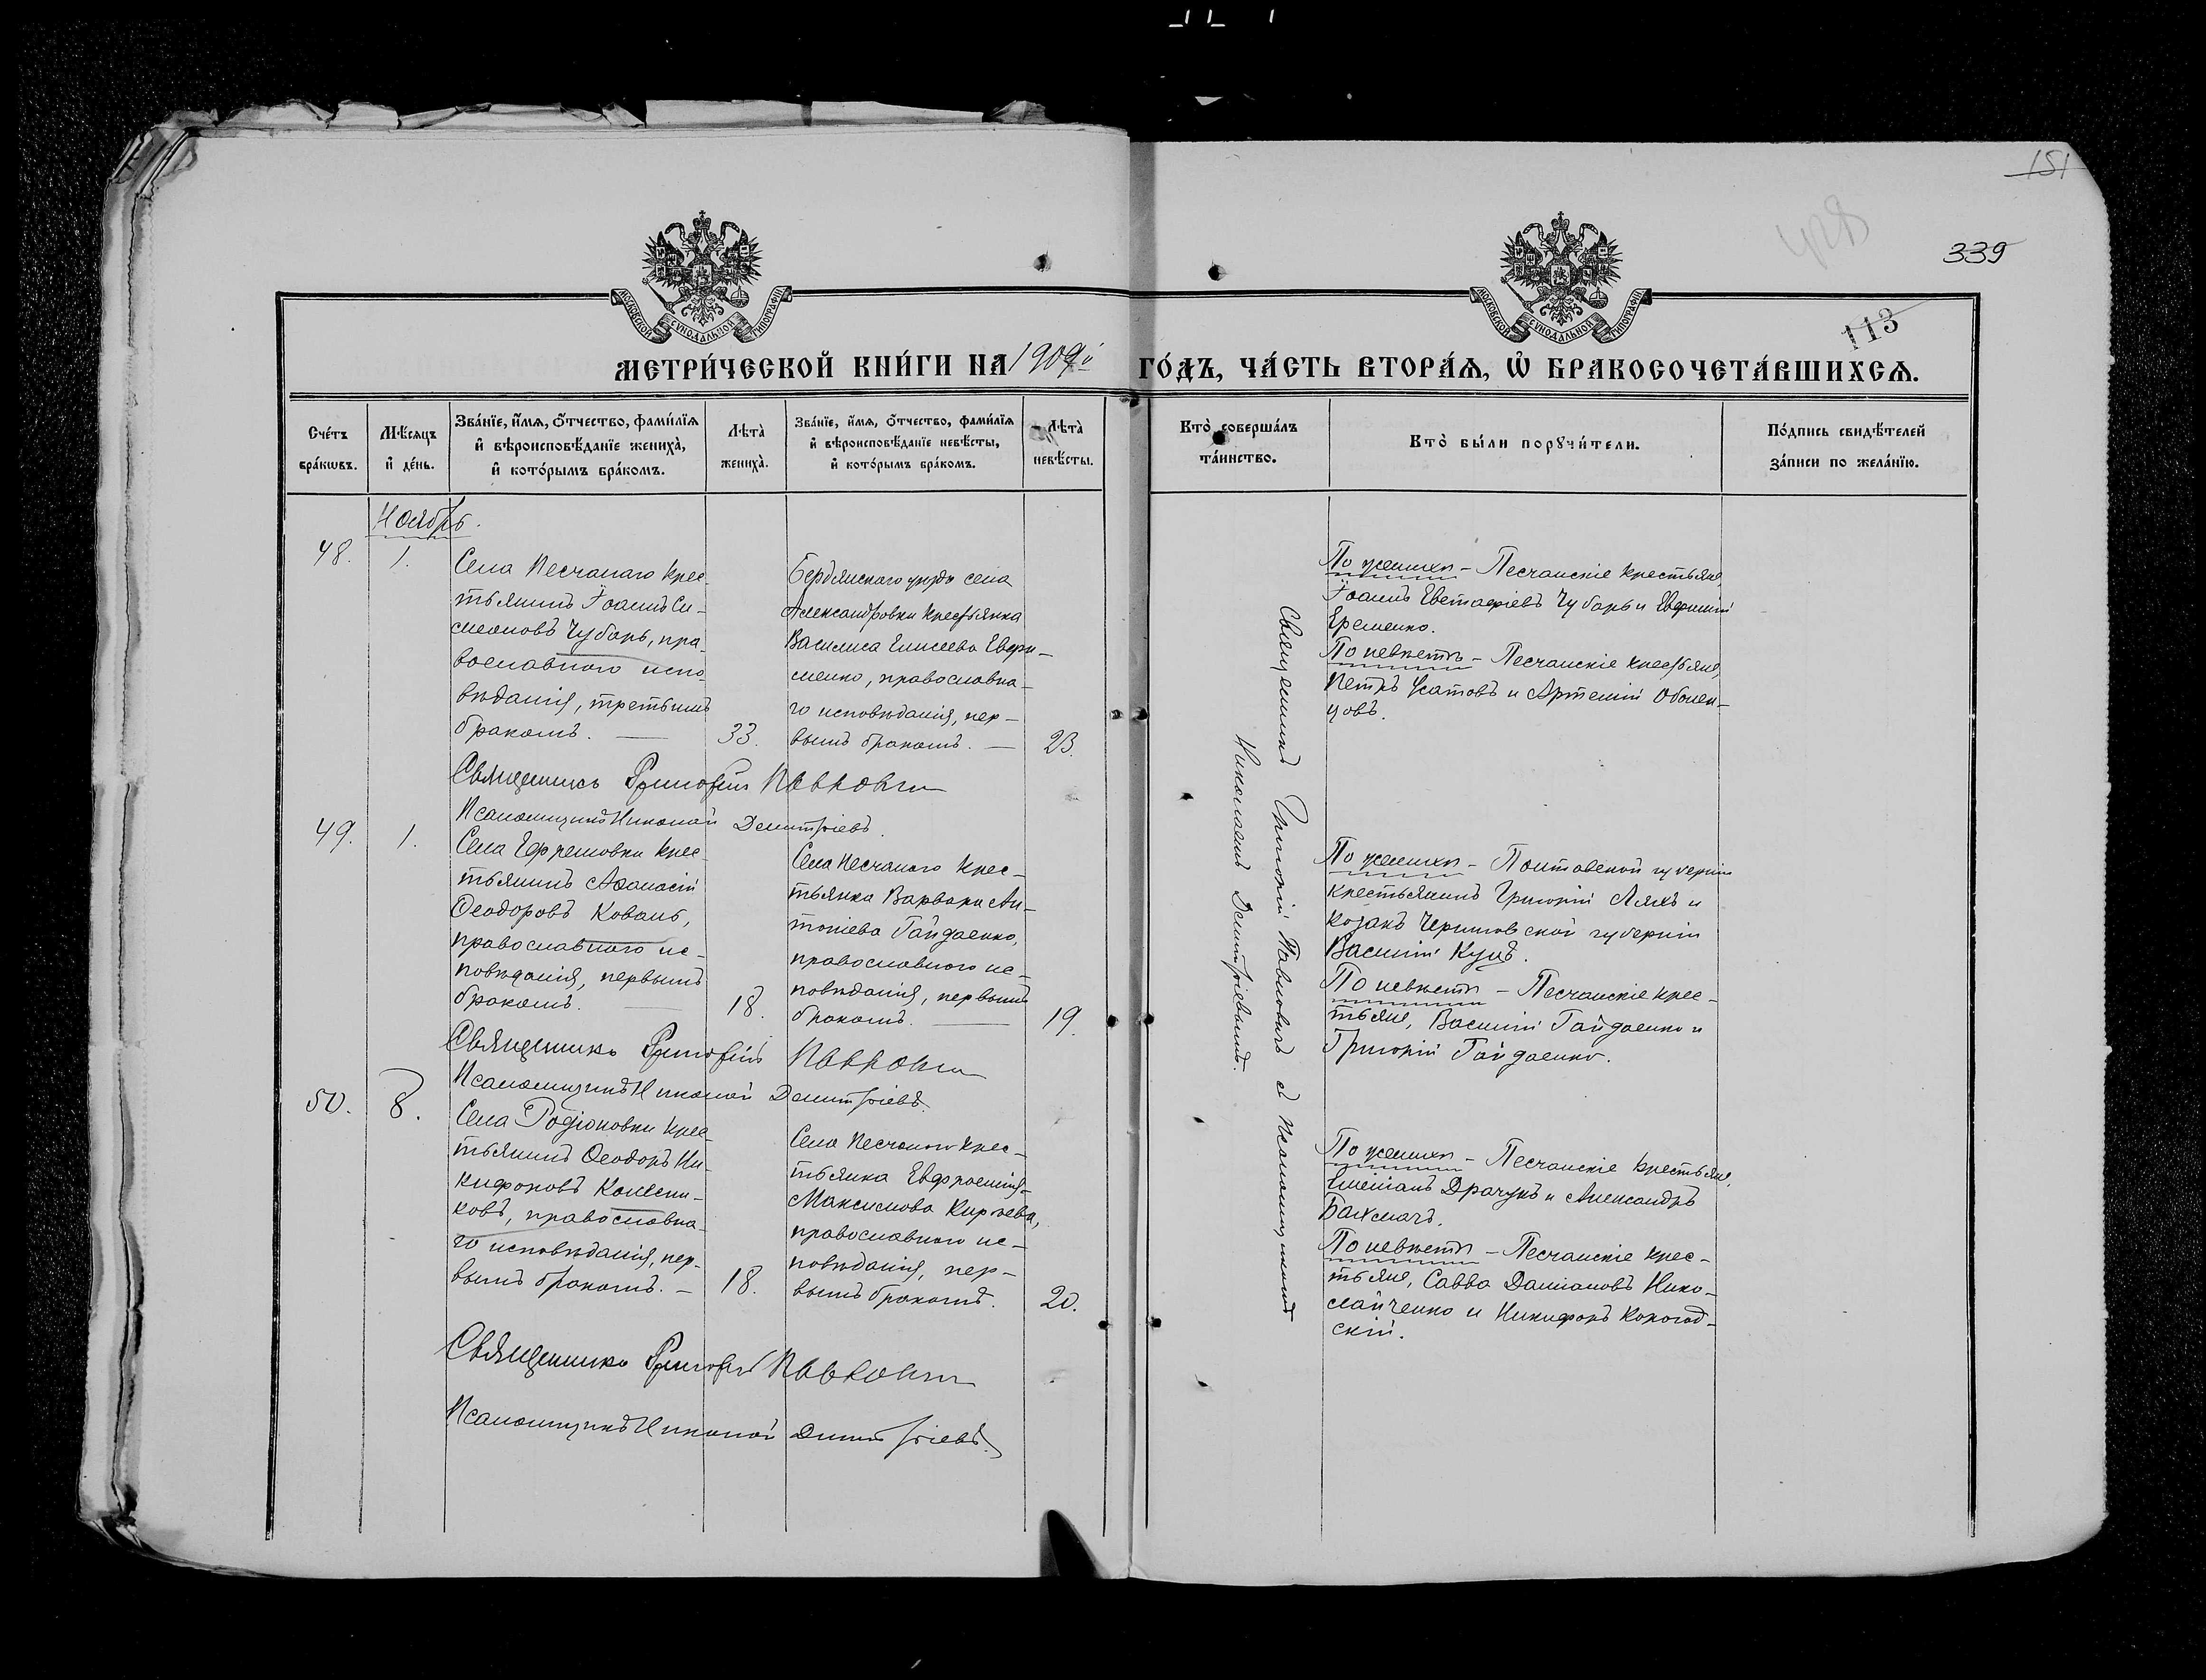 151
428
339
113
МОСКОВСКОЙ СѴНОДАЛЬНОЙ ТИПОГРАФІИ
МОСКОВСКОЙ СѴНОДАЛЬНОЙ ТИПОГРАФІИ
МЕТРИ́ЧЕСКОЙ КНИ́ГИ НА 1909й ГО́ДЪ, ЧА́СТЬ ВТОРА́Ѧ, Ѽ БРАКОСОЧЕТА́ВШИХСѦ.
Сче́тъ
бра́кѡвъ.
Мѣ́сѧцъ
и҆ де́нь.
Зва́нїе, и҆́мѧ, ѻ҆́тчество, фами́лїѧ
и҆ вѣроисповѣ́данїе жениха̀,
и҆ кото́рымъ бра́комъ.
Лѣта̀
жениха̀.
Зва́нїе, и҆́мѧ, ѻ҆́тчество, фами́лїѧ
и҆ вѣроисповѣ́данїе невѣ́сты,
и҆ кото́рымъ бра́комъ.
Лѣта̀
невѣ́сты.
Кто̀ соверша́лъ
та́инство.
Кто̀ бы́ли порꙋчи́тели.
По́дпись свидѣ́телей
за́писи по жела́нїю.
Ноябрь.
48.
1.
Села Песчанаго крес-
тьянинъ Іоаннъ Си-
меоновъ Чубарь, пра-
вославнаго испо-
вѣданія, третьимъ
бракомъ. —
33.
Бердянскаго уѣзда села
Александровки крестьянка
Василиса Елисеева Ефри-
менко, православна-
го исповѣданія, пер-
вымъ бракомъ. —
23.
По женихѣ – Песчанскіе крестьяне,
Іоаннъ Евстафіевъ Чубарь и Евфимій
Еременко.
По невѣстѣ – Песчанскіе крестьяне,
Петръ Усатовъ и Артемій Оболен-
цовъ.
Священникъ Григорій Павловичъ
Псаломщикъ Николай Димитріевъ.
49.
1.
Села Ефремовки крес-
тьянинъ Аѳанасій
Ѳеодоровъ Коваль,
православнаго ис-
повѣданія, первымъ
бракомъ. —
18.
Села Песчанаго крес-
тьянка Варвара Ан-
тоніева Гайдаенко,
православнаго ис-
повѣданія, первымъ
бракомъ. —
19.
По женихѣ – Полтавской губерніи
крестьянинъ Григорій Ляхъ и
козакъ Черниговской губерніи
Василій Куцъ.
По невѣстѣ – Песчанскіе крес-
тьяне, Василій Гайдаенко и
Григорій Гайдаенко.
Священникъ Григорій Павловичъ
Псаломщикъ Николай Димитріевъ.
50.
8.
Села Родіоновки крес-
тьянинъ Ѳеодоръ Ни-
кифоровъ Колесни-
ковъ, православна-
го исповѣданія, пер-
вымъ бракомъ. —
18.
Села Песчанаго крес-
тьянка Евфросинія
Максимова Кирѣева,
православнаго ис-
повѣданія, пер-
вымъ бракомъ.
20.
По женихѣ – Песчанскіе крестьяне,
Емеліанъ Драчукъ и Александръ
Бахмачъ.
По невѣстѣ – Песчанскіе крес-
тьяне, Савва Даміановъ Нико-
лайченко и Никифоръ Кологод-
скій.
Священникъ Григорій Павловичъ
Псаломщикъ Николай Димитріевъ.
Священникъ Григорій Павловичъ съ Псаломщикомъ
Николаемъ Димитріевымъ.